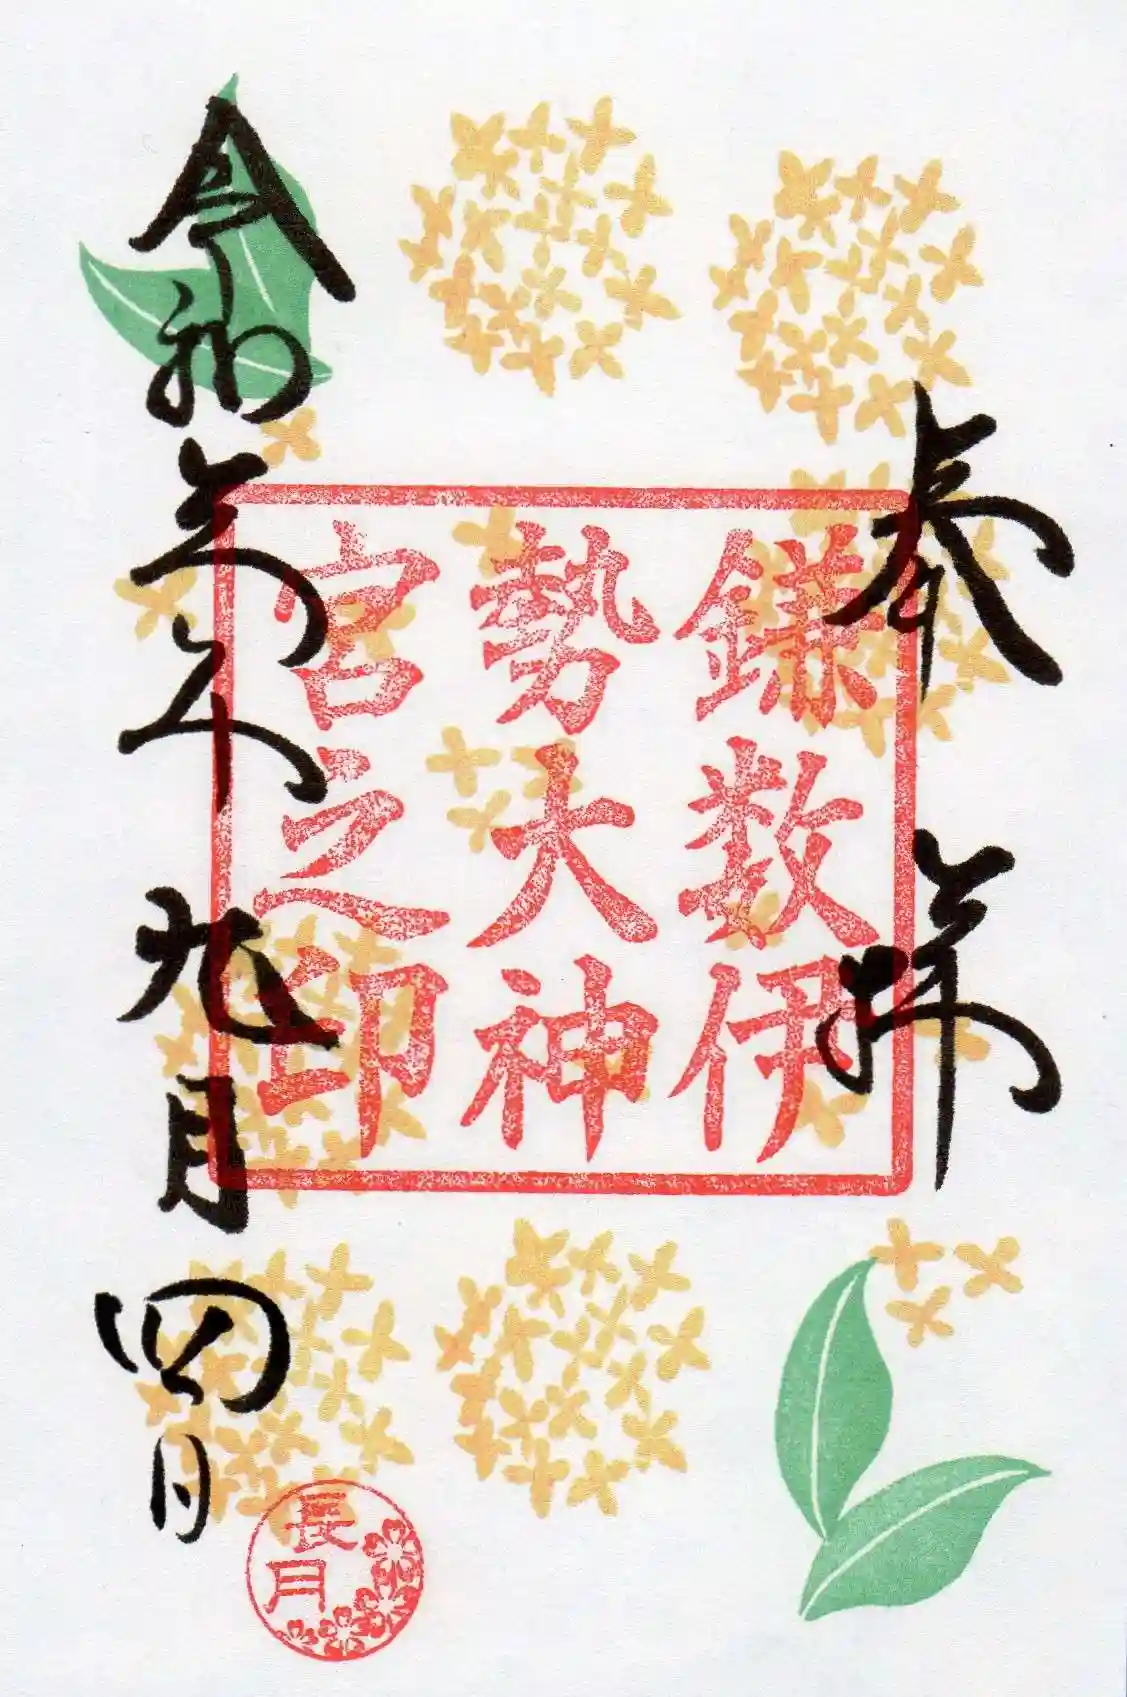 奉拝
鎌数伊
勢大神
宮之印
令和年九月四日
長月